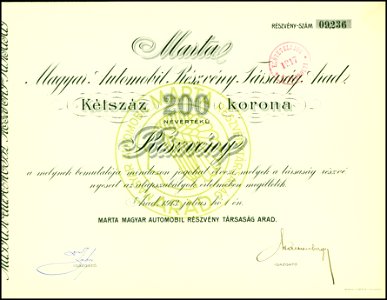 RÉSZVÉNY-SZÁM 09,236
Marta
Magyar Automobil Részvény Társaság Arad
Kétszáz 200 korona
NÉVÉRTÉKŰ
Részvény
a melynek bemutatója mindazon jogokat élvezi, melyek a társaság részvé-
nyeseit az alapszabályok értelmében megilletik.
Arad, 1912 július hó 1-én.
MARTA MAGYAR AUTOMOBIL RÉSZVÉNY TÁRSASÁG ARAD.
IGAZGATÓ
IGAZGATÓ